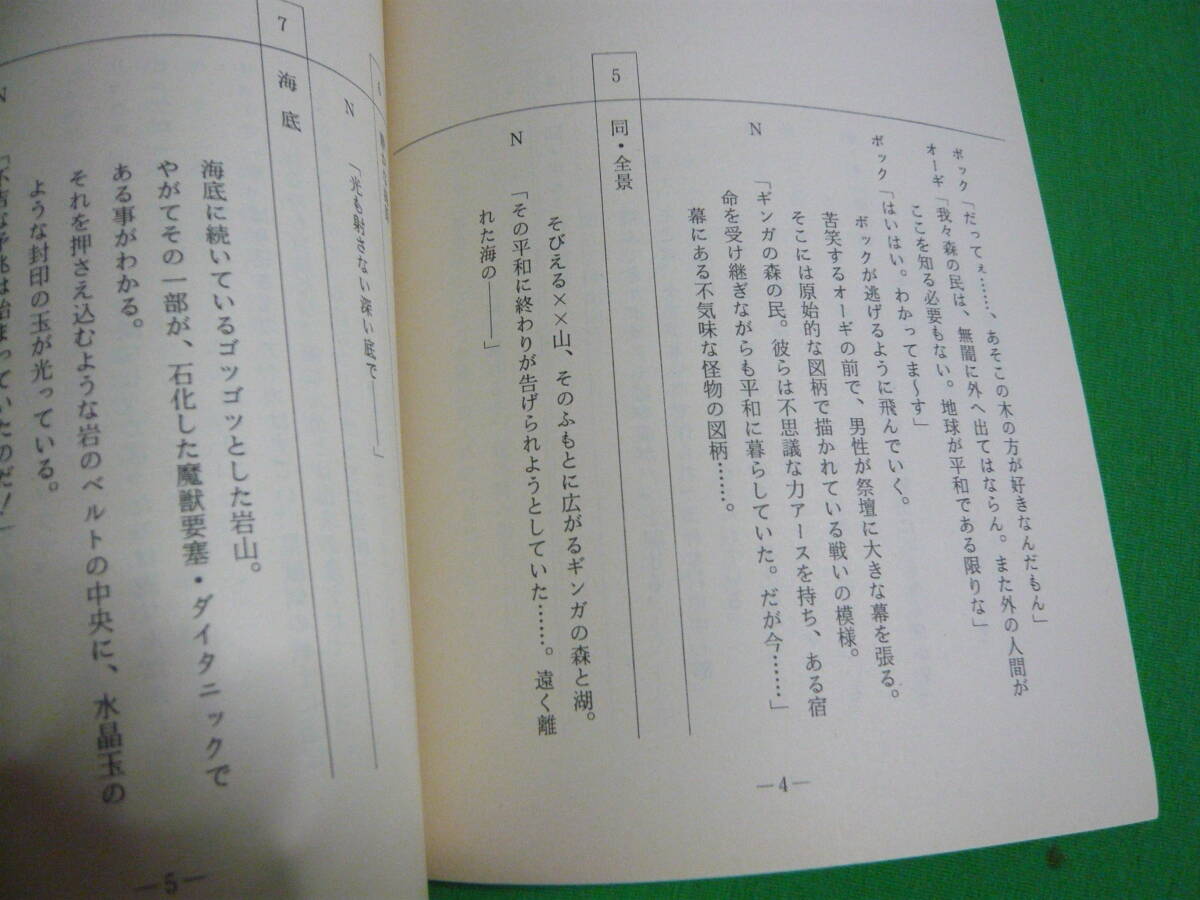 ボック「だってぇ……、あそこの木の方が好きなんだもん」
オーギ「我々森の民は、無闇に外へ出てはならん。また外の人間が
ここを知る必要もない。地球が平和である限りな」
ボック「はいはい。わかってま〜す」
ボックが逃げるように飛んでいく。
苦笑するオーギの前で、男性が祭壇に大きな幕を張る。
そこには原始的な図柄で描かれている戦いの模様。
N「ギンガの森の民。彼らは不思議な力アースを持ち、ある宿
命を受け継ぎながらも平和に暮らしていた。だが今……」
幕にある不気味な怪物の図柄……。
5 同・全景
そびえる××山、そのふもとに広がるギンガの森と湖。
N「その平和に終わりが告げられようとしていた……。遠く離
れた海の――」
—4—
N「光も射さない深い底で――」
7 海底
海底に続いているゴツゴツとした岩山。
やがてその一部が、石化した魔獣要塞・ダイタニックで
ある事がわかる。
それを押さえ込むような岩のベルトの中央に、水晶玉の
ような封印の玉が光っている。
N
は始まっていたのだ！」
—5—